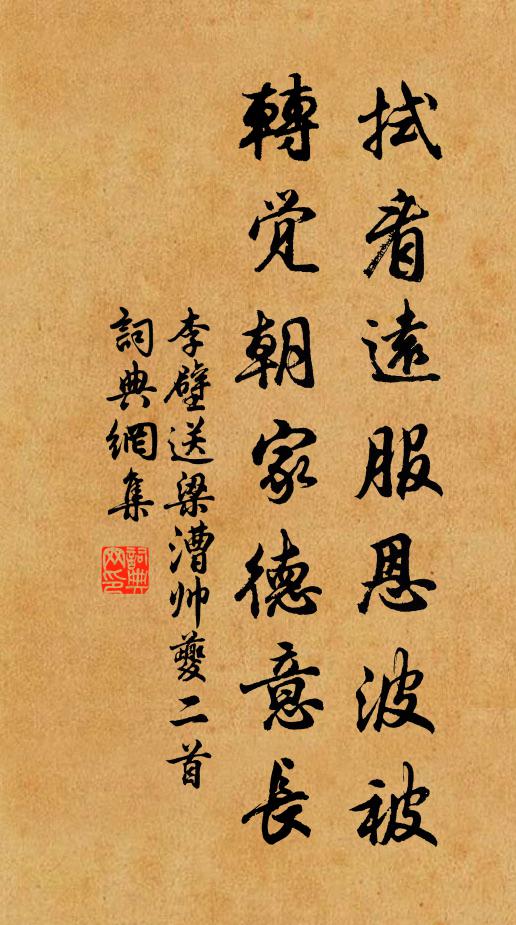 拭看遠服恩波被
轉覺朝家德意長
李壁送梁漕帅夔二首
詞典網集
詞典网印